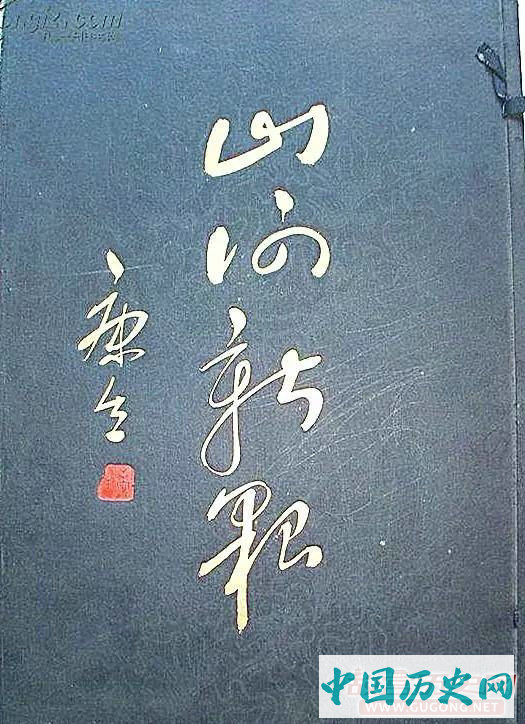 山河新貌
康生
中国历史网
WWW.GUGONG.NET